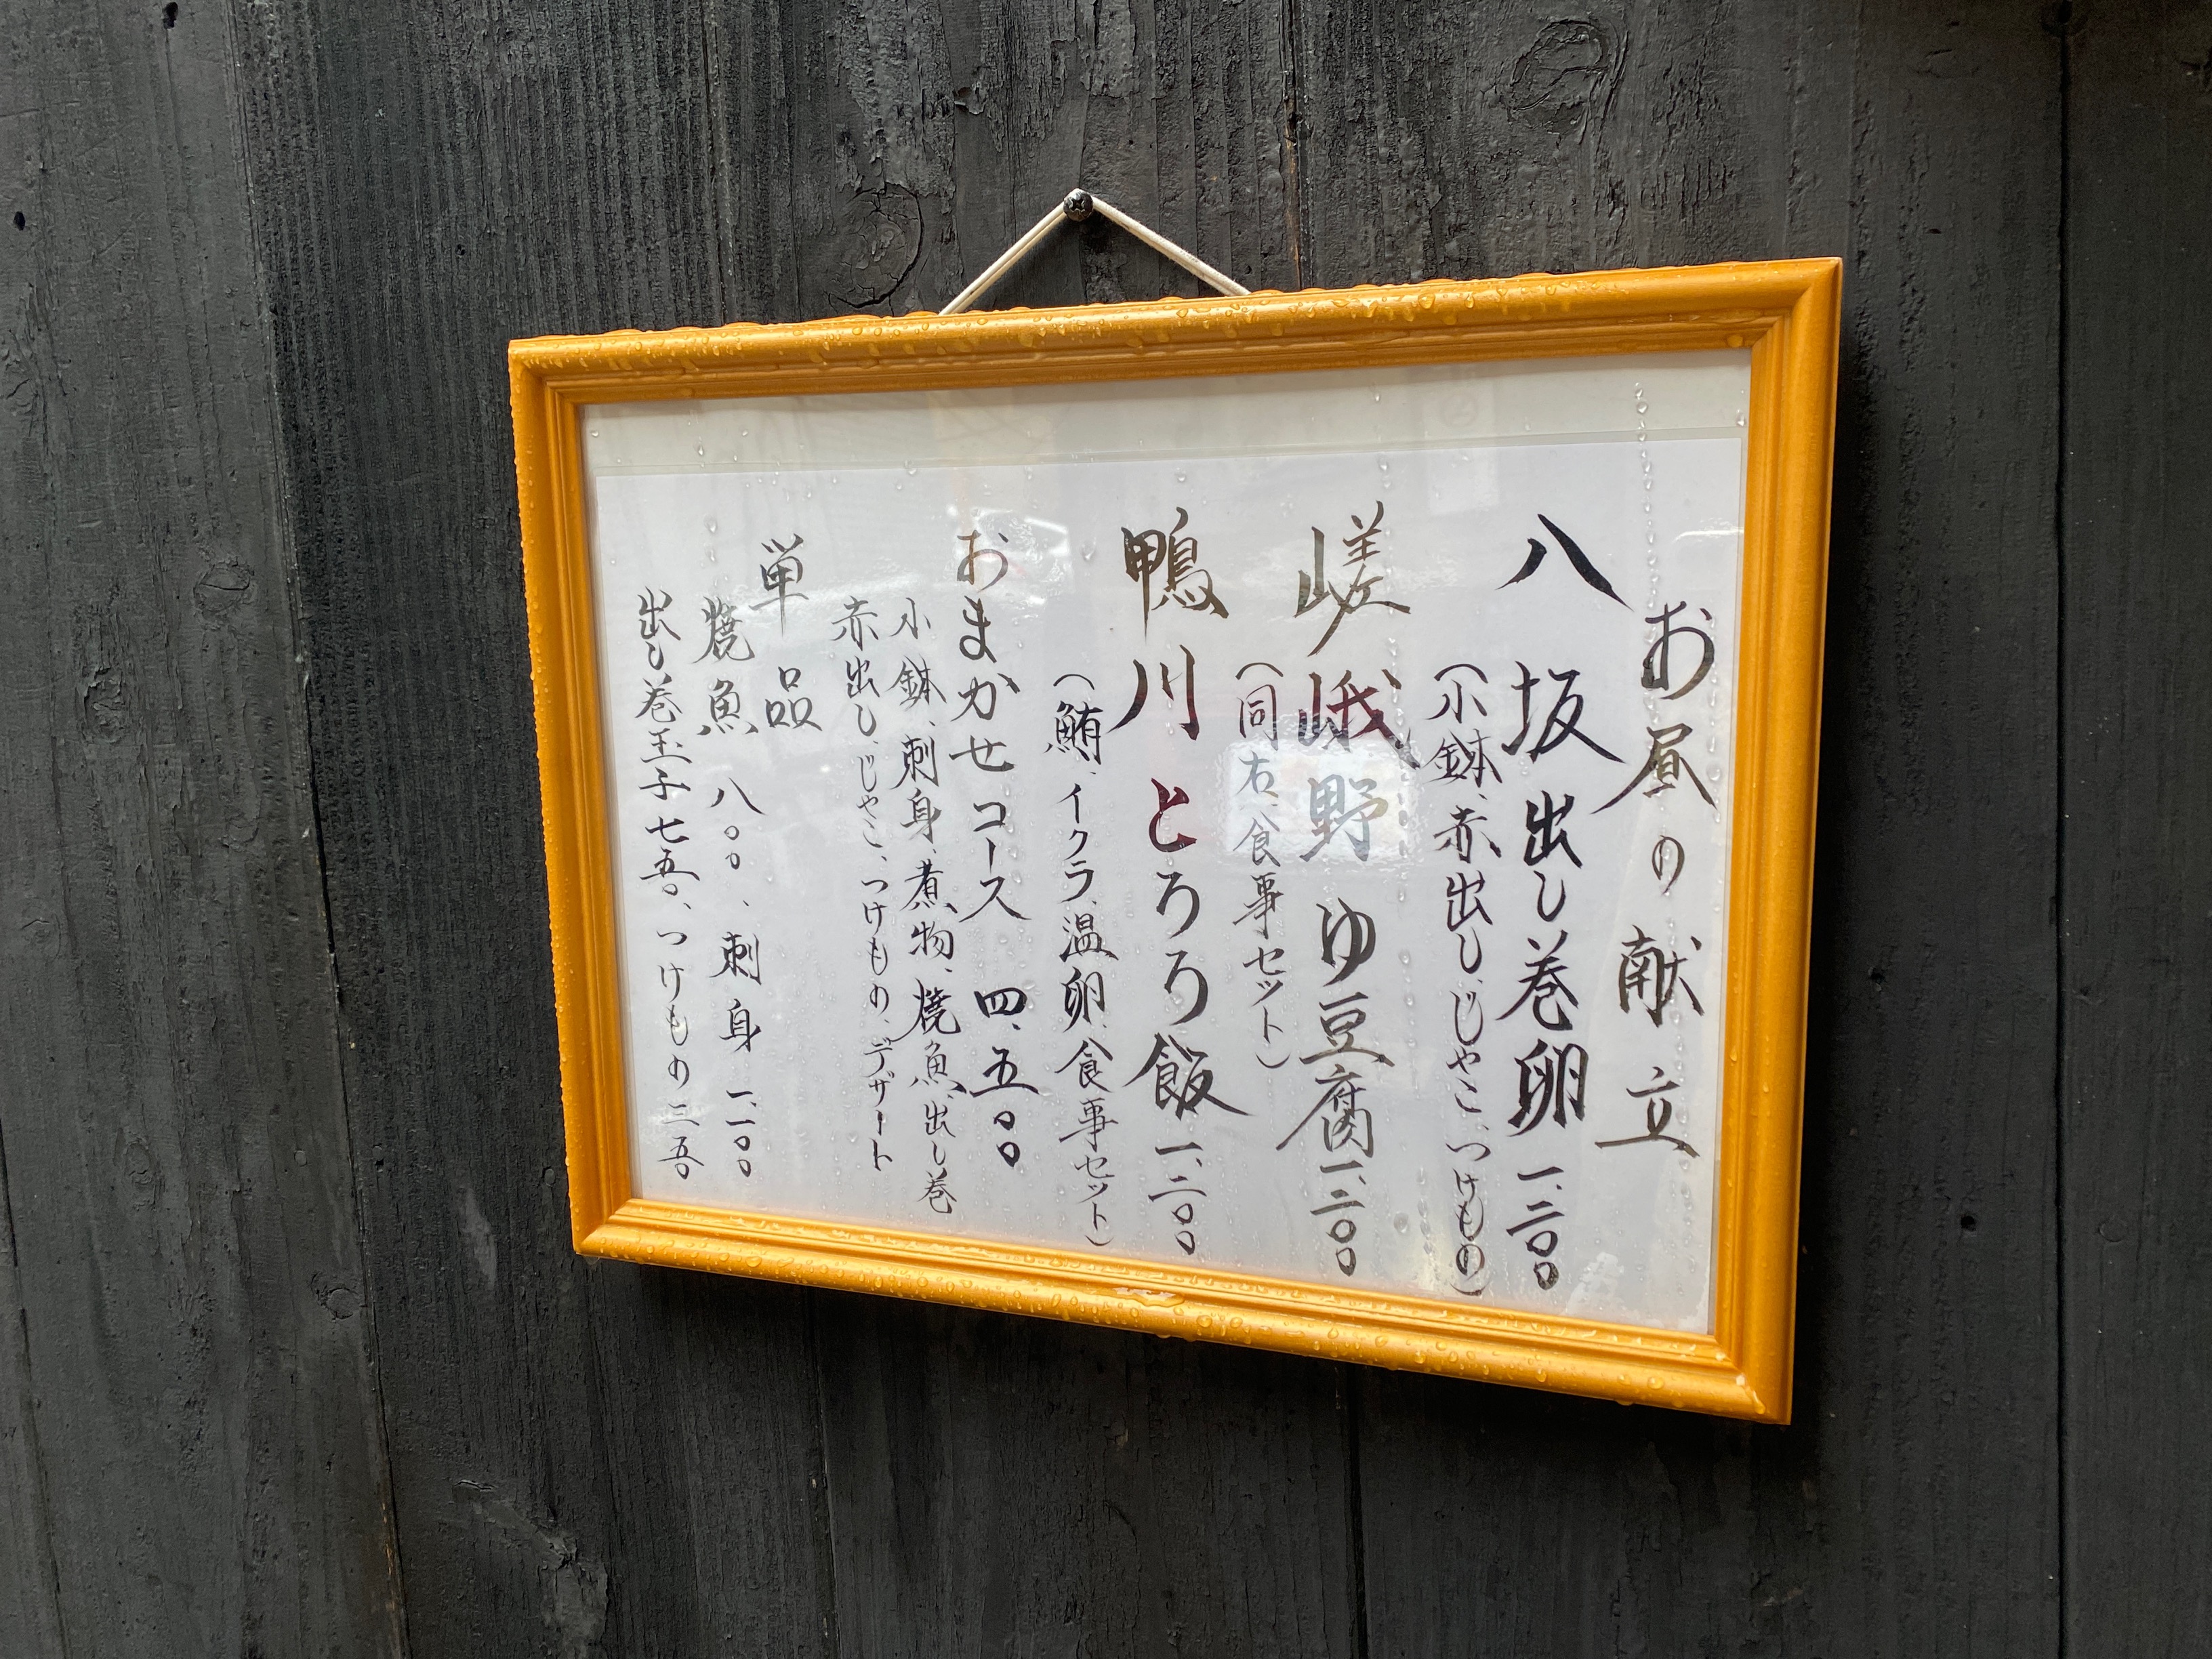 お昼の献立
八坂出し巻卵 一、二〇〇
(小鉢、赤出し、じゃこ、つけもの)
嵯峨野ゆ豆腐 一、二〇〇
(同右、食事セット)
鴨川とろろ飯 一、二〇〇
(鮪、イクラ、温卵、食事セット)
おまかせコース 四、五〇〇
小鉢、刺身、煮物、焼魚、出し巻
赤出し、じゃこ、つけもの、デザート
単品
焼魚 八〇〇、刺身 一、二〇〇
出し巻玉子七五〇、つけもの二五〇